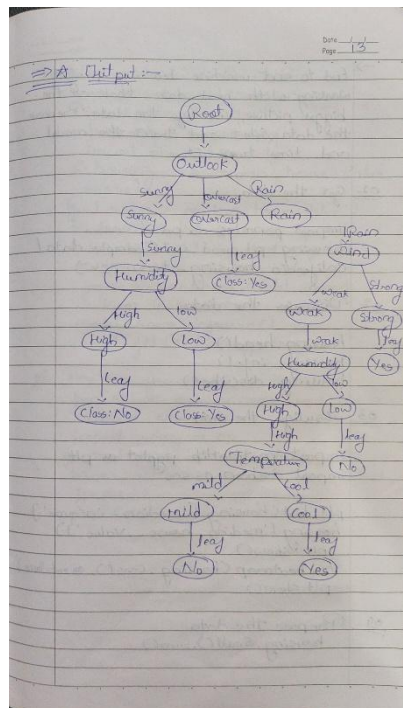 Date / /
Page 13
=> A Output :-
Root
Outlook
Sunny Overcast Rain
Sunny Overcast Rain
Rain
Sunny Leaf Wind
Humidity Class: Yes weak Strong
High low weak Strong
High Low weak leaf
Leaf Leaf Humidity Yes
Class: No Class: Yes High low
High Low
High leaf
Temperature No
mild Cool
mild Cool
leaf leaf
No Yes